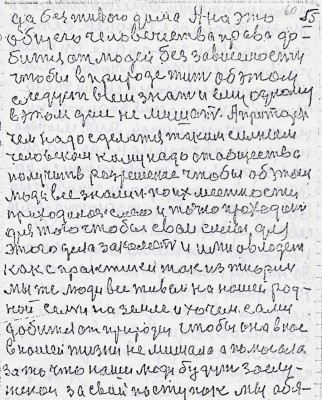 да без живого дома А на это
общего человечества права до-
биться от людей без зависемости
чтобы в природе жить об этом
следует всем знать и ему одному
в этом деле не мешать. А притаких
чем надо сделаться таким сильным
человеком кому надо от общества
получить разрешение чтобы об этом
люди все знали по их местности
приходилось и точно проходить
для того чтобы свои силы для
этого дела заколеть и ими овладеть
как с практики так из теории
мы же люди все живем на нашей род-
ной селы на земле и хочем сами
добиться от природы чтобы она в нас
в нашей жизни не мешала а помогала
за то что наши люди будут заслу-
жской за свой поступок мы обя-